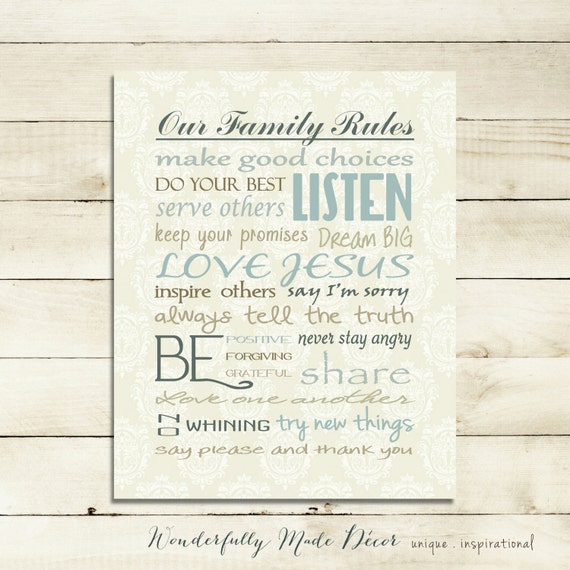 Our Family Rules
make good choices
DO YOUR BEST
serve others
LISTEN
keep your promises Dream BIG
LOVE JESUS
inspire others say I'm sorry
always tell the truth
BE
POSITIVE
FORGIVING
GRATEFUL
never stay angry
share
Love one another
NO WHINING try new things
say please and thank you
Wonderfully Made Décor unique . inspirational